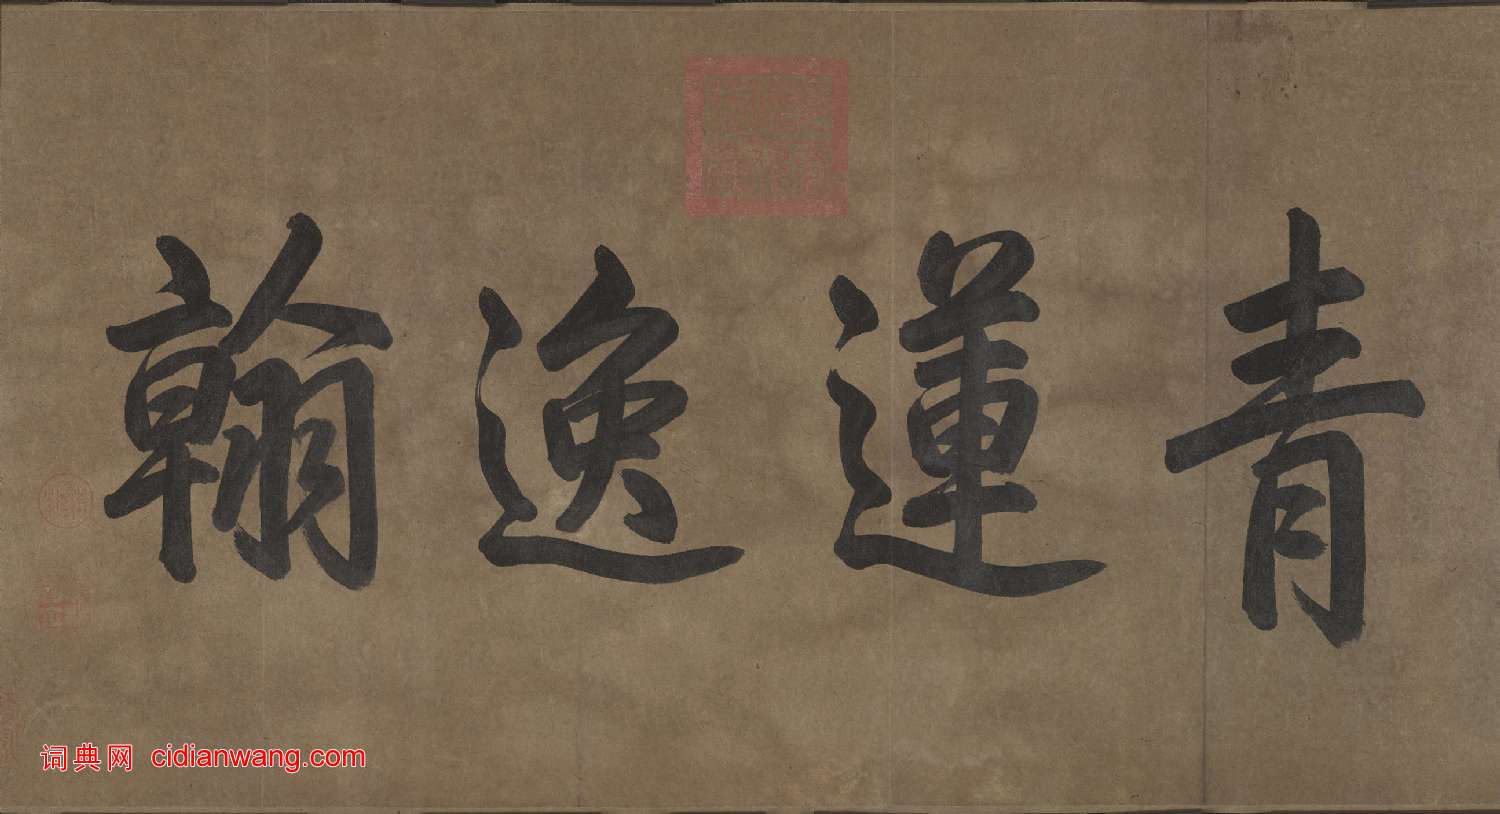 青蓮逸翰
词典网 cidianwang.com